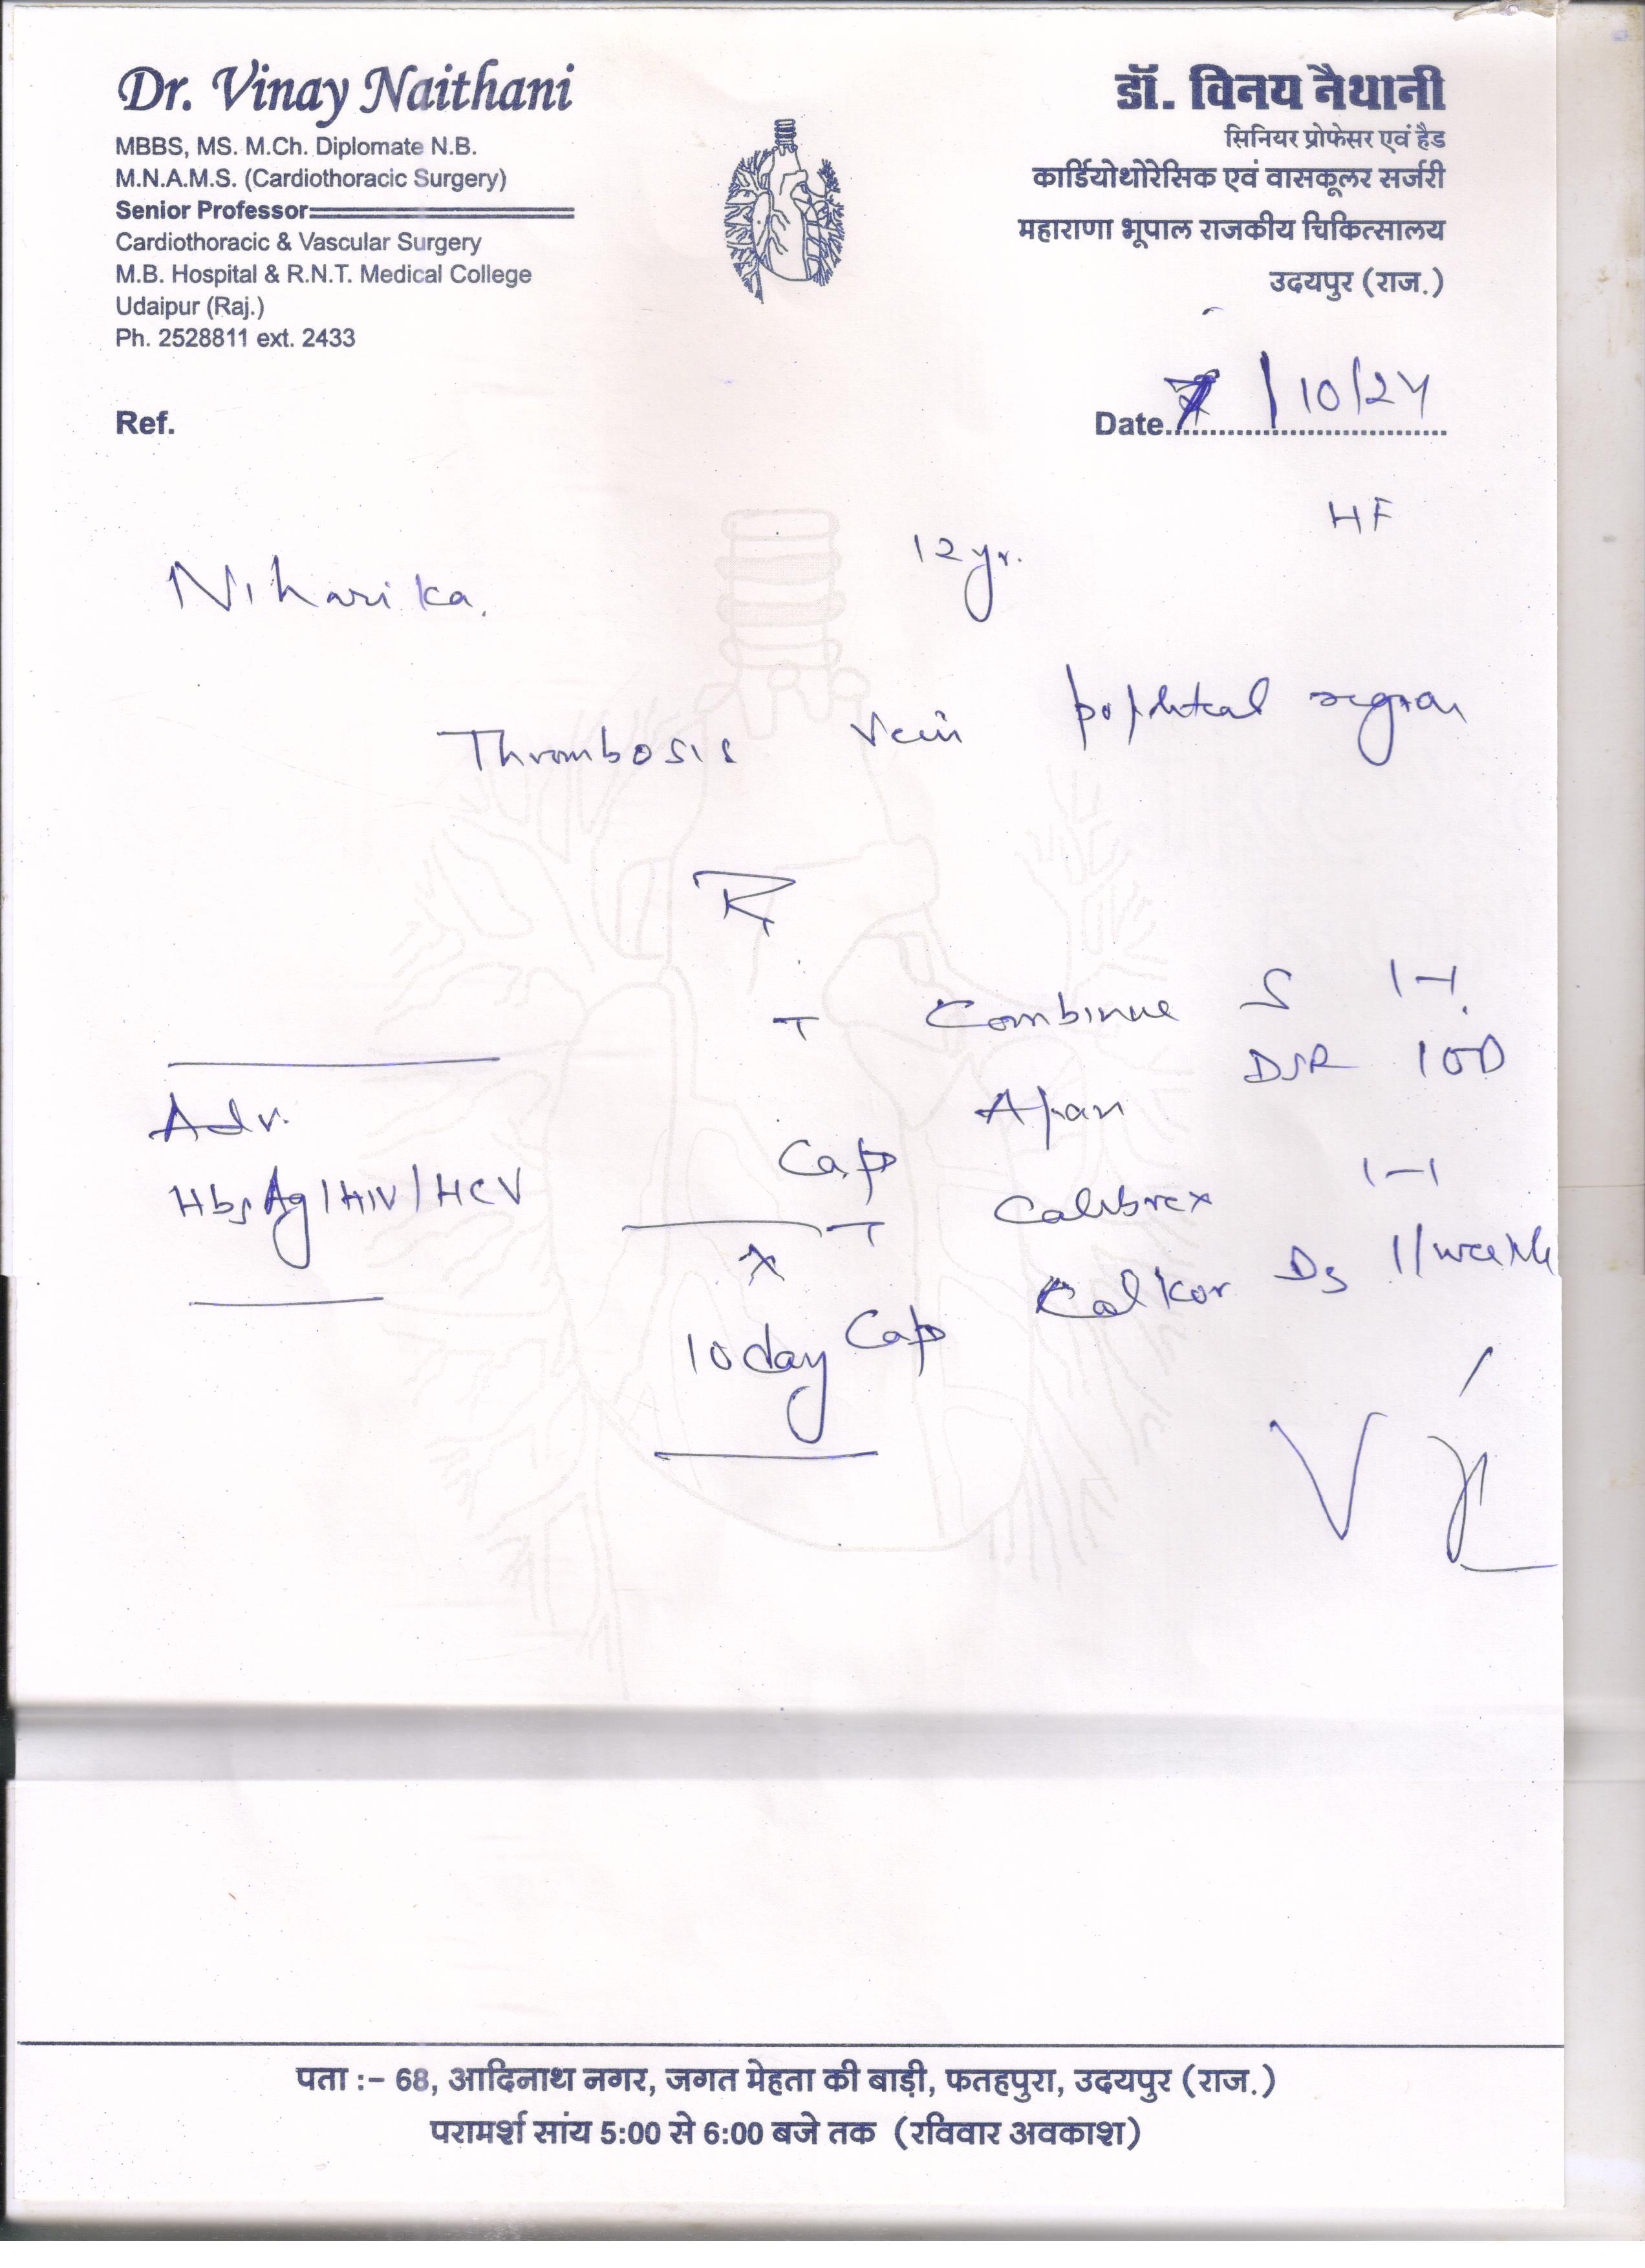 Dr. Vinay Naithani
MBBS, MS. M.Ch. Diplomate N.B.
M.N.A.M.S. (Cardiothoracic Surgery)
Senior Professor
Cardiothoracic & Vascular Surgery
M.B. Hospital & R.N.T. Medical College
Udaipur (Raj.)
Ph. 2528811 ext. 2433
डॉ. विनय नैथानी
सिनियर प्रोफेसर एवं हैड
कार्डियोथोरेसिक एवं वासकूलर सर्जरी
महाराणा भूपाल राजकीय चिकित्सालय
उदयपुर (राज.)
Ref.
Date 7/10/24
HF
Niharika. 12 yr.
Thrombosis Vein popliteal region
Rx
T Combinue S 1-1.
Cap Apan DSR 100
T Calibrex 1-1
Cap Calkor Ds 1/week
x
10 day
Adv.
HbsAg/HIV/HCV
पता :- 68, आदिनाथ नगर, जगत मेहता की बाड़ी, फतहपुरा, उदयपुर (राज.)
परामर्श सांय 5:00 से 6:00 बजे तक (रविवार अवकाश)